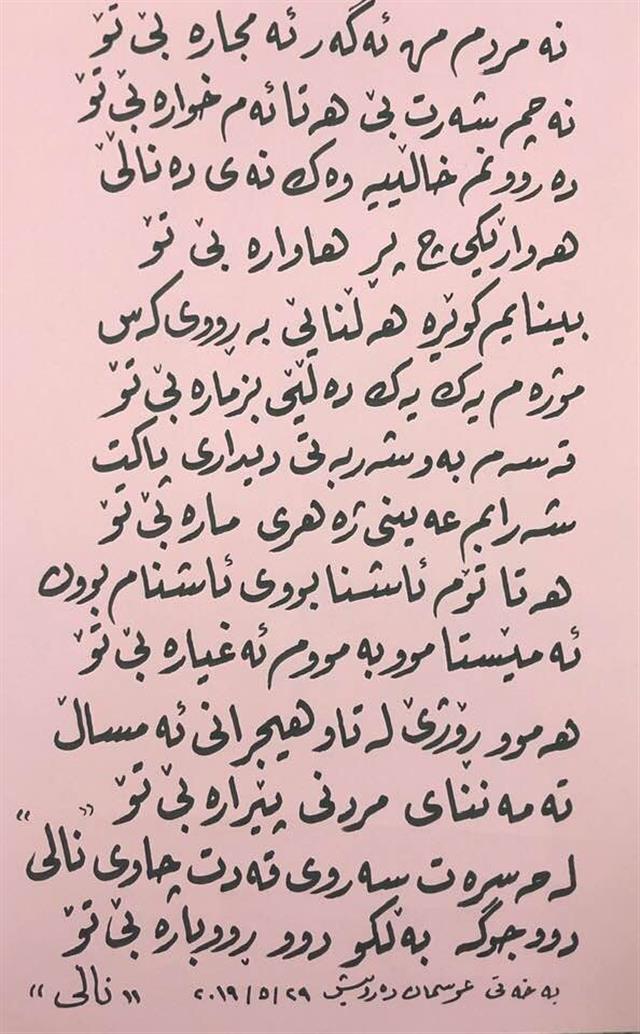 نه مردم من ئه‌گه‌ر ئه‌مجاره بێ تۆ
نه‌چم شه‌رت بێ هه‌تا ئه‌م خواره بێ تۆ
ده‌روونم خاڵییه وه‌ک نه‌ی ده‌ناڵێ
هه‌وارێکی چ پڕ هاواره بێ تۆ
بینایم کوێره هه‌ڵنایێ به ڕووی که‌س
موژه‌م یه‌ک یه‌ک ده‌ڵێی بزماره بێ تۆ
قه‌سه‌م به‌و شه‌ربه‌تی دیداری پاکت
شه‌رابم عه‌ینی ژه‌هری ماره بێ تۆ
هه‌تا تۆم ئاشنا بووی ئاشنام بوون
ئه‌مێستا موو به مووم ئه‌غیاره بێ تۆ
هه‌موو ڕۆژێ له تاو هیجرانی ئه‌مساڵ
ته‌مه‌ننای مردنی پێراره بێ تۆ
له حه‌سره‌ت سه‌روی قه‌دت چاوی "نالی"
دوو جۆگه به‌ڵکو دوو ڕووباره بێ تۆ
به خه‌تی عوسمان ده‌روێش ٢٠١٩/٥/٢٩ "نالی"